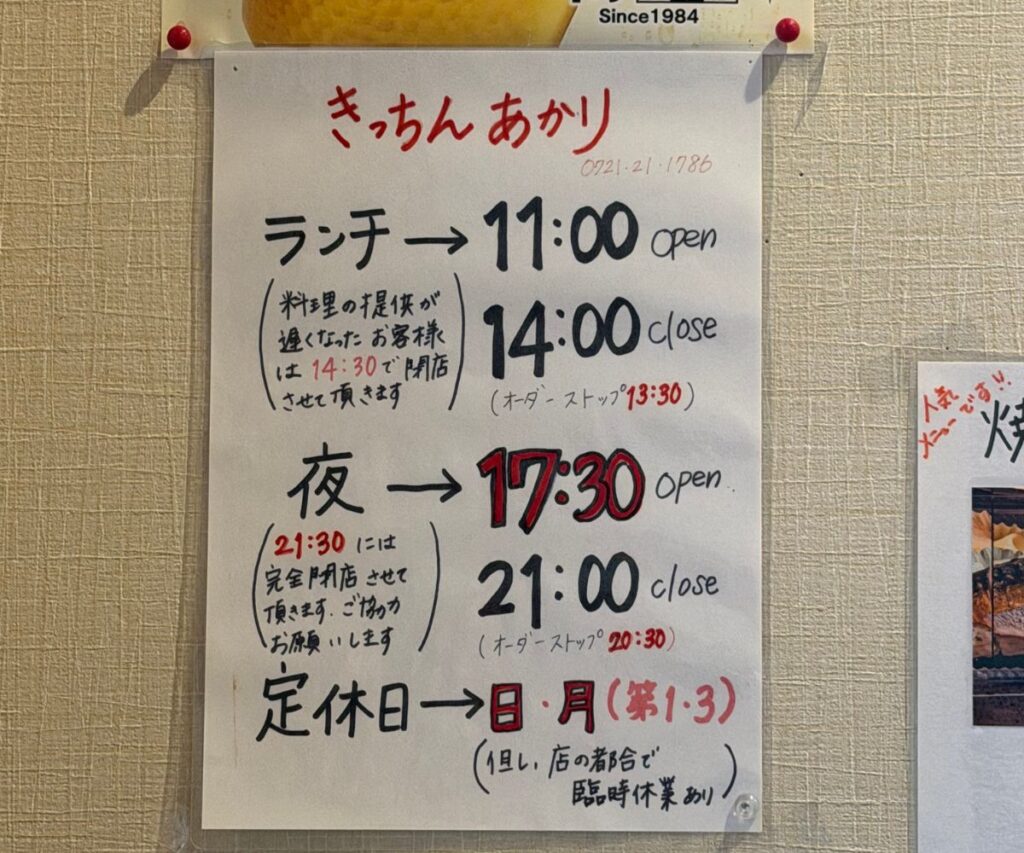 Since1984
きっちん あかり
0721・21・1786
ランチ → 11:00 open
(料理の提供が
遅くなったお客様
は 14:30で閉店
させて頂きます)
14:00 close
(オーダーストップ13:30)
夜 → 17:30 open
(21:30 には
完全閉店させて
頂きます。ご協力
お願いします)
21:00 close
(オーダーストップ20:30)
定休日→日・月(第1・3)
(但し、店の都合で
臨時休業あり)
人気
メニューです!!
焼